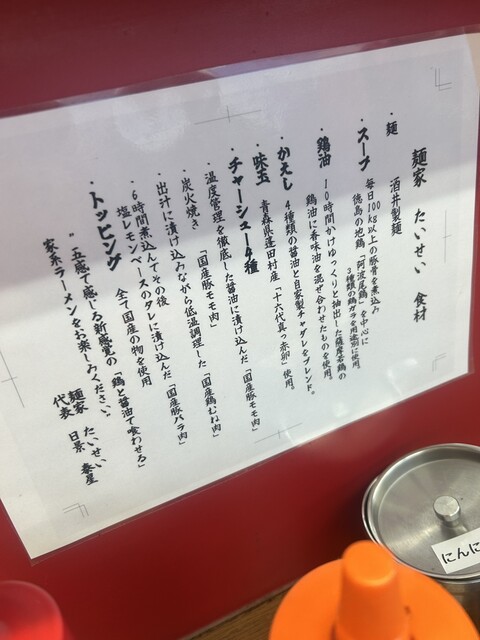 麺家 たいせい 食材
・麺 酒井製麺
・スープ 毎日100kg以上の豚骨を煮込み
徳島の地鶏「阿波尾鶏」を中心に
3種類の鶏ガラを用途別に使用。
・鶏油 10時間かけゆっくりと抽出した薩摩若鶏の
鶏油に香味油を混ぜ合わせたものを使用。
・かえし 4種類の醤油と自家製チャダレをブレンド。
・味玉 青森県蓬田村産「十六代真っ赤卵」使用。
・チャーシュー4種
・温度管理を徹底した醤油に漬け込んだ「国産豚モモ肉」
・炭火焼き 「国産豚モモ肉」
・出汁に漬け込みながら低温調理した「国産鶏むね肉」
・6時間煮込んでその後
塩レモンベースのタレに漬け込んだ「国産豚バラ肉」
・トッピング 全て国産の物を使用
"五感で感じる新感覚の「鶏と醤油で喰わせる」
家系ラーメンをお楽しみください。"
麺家 たいせい
代表 日景 泰星
にんに